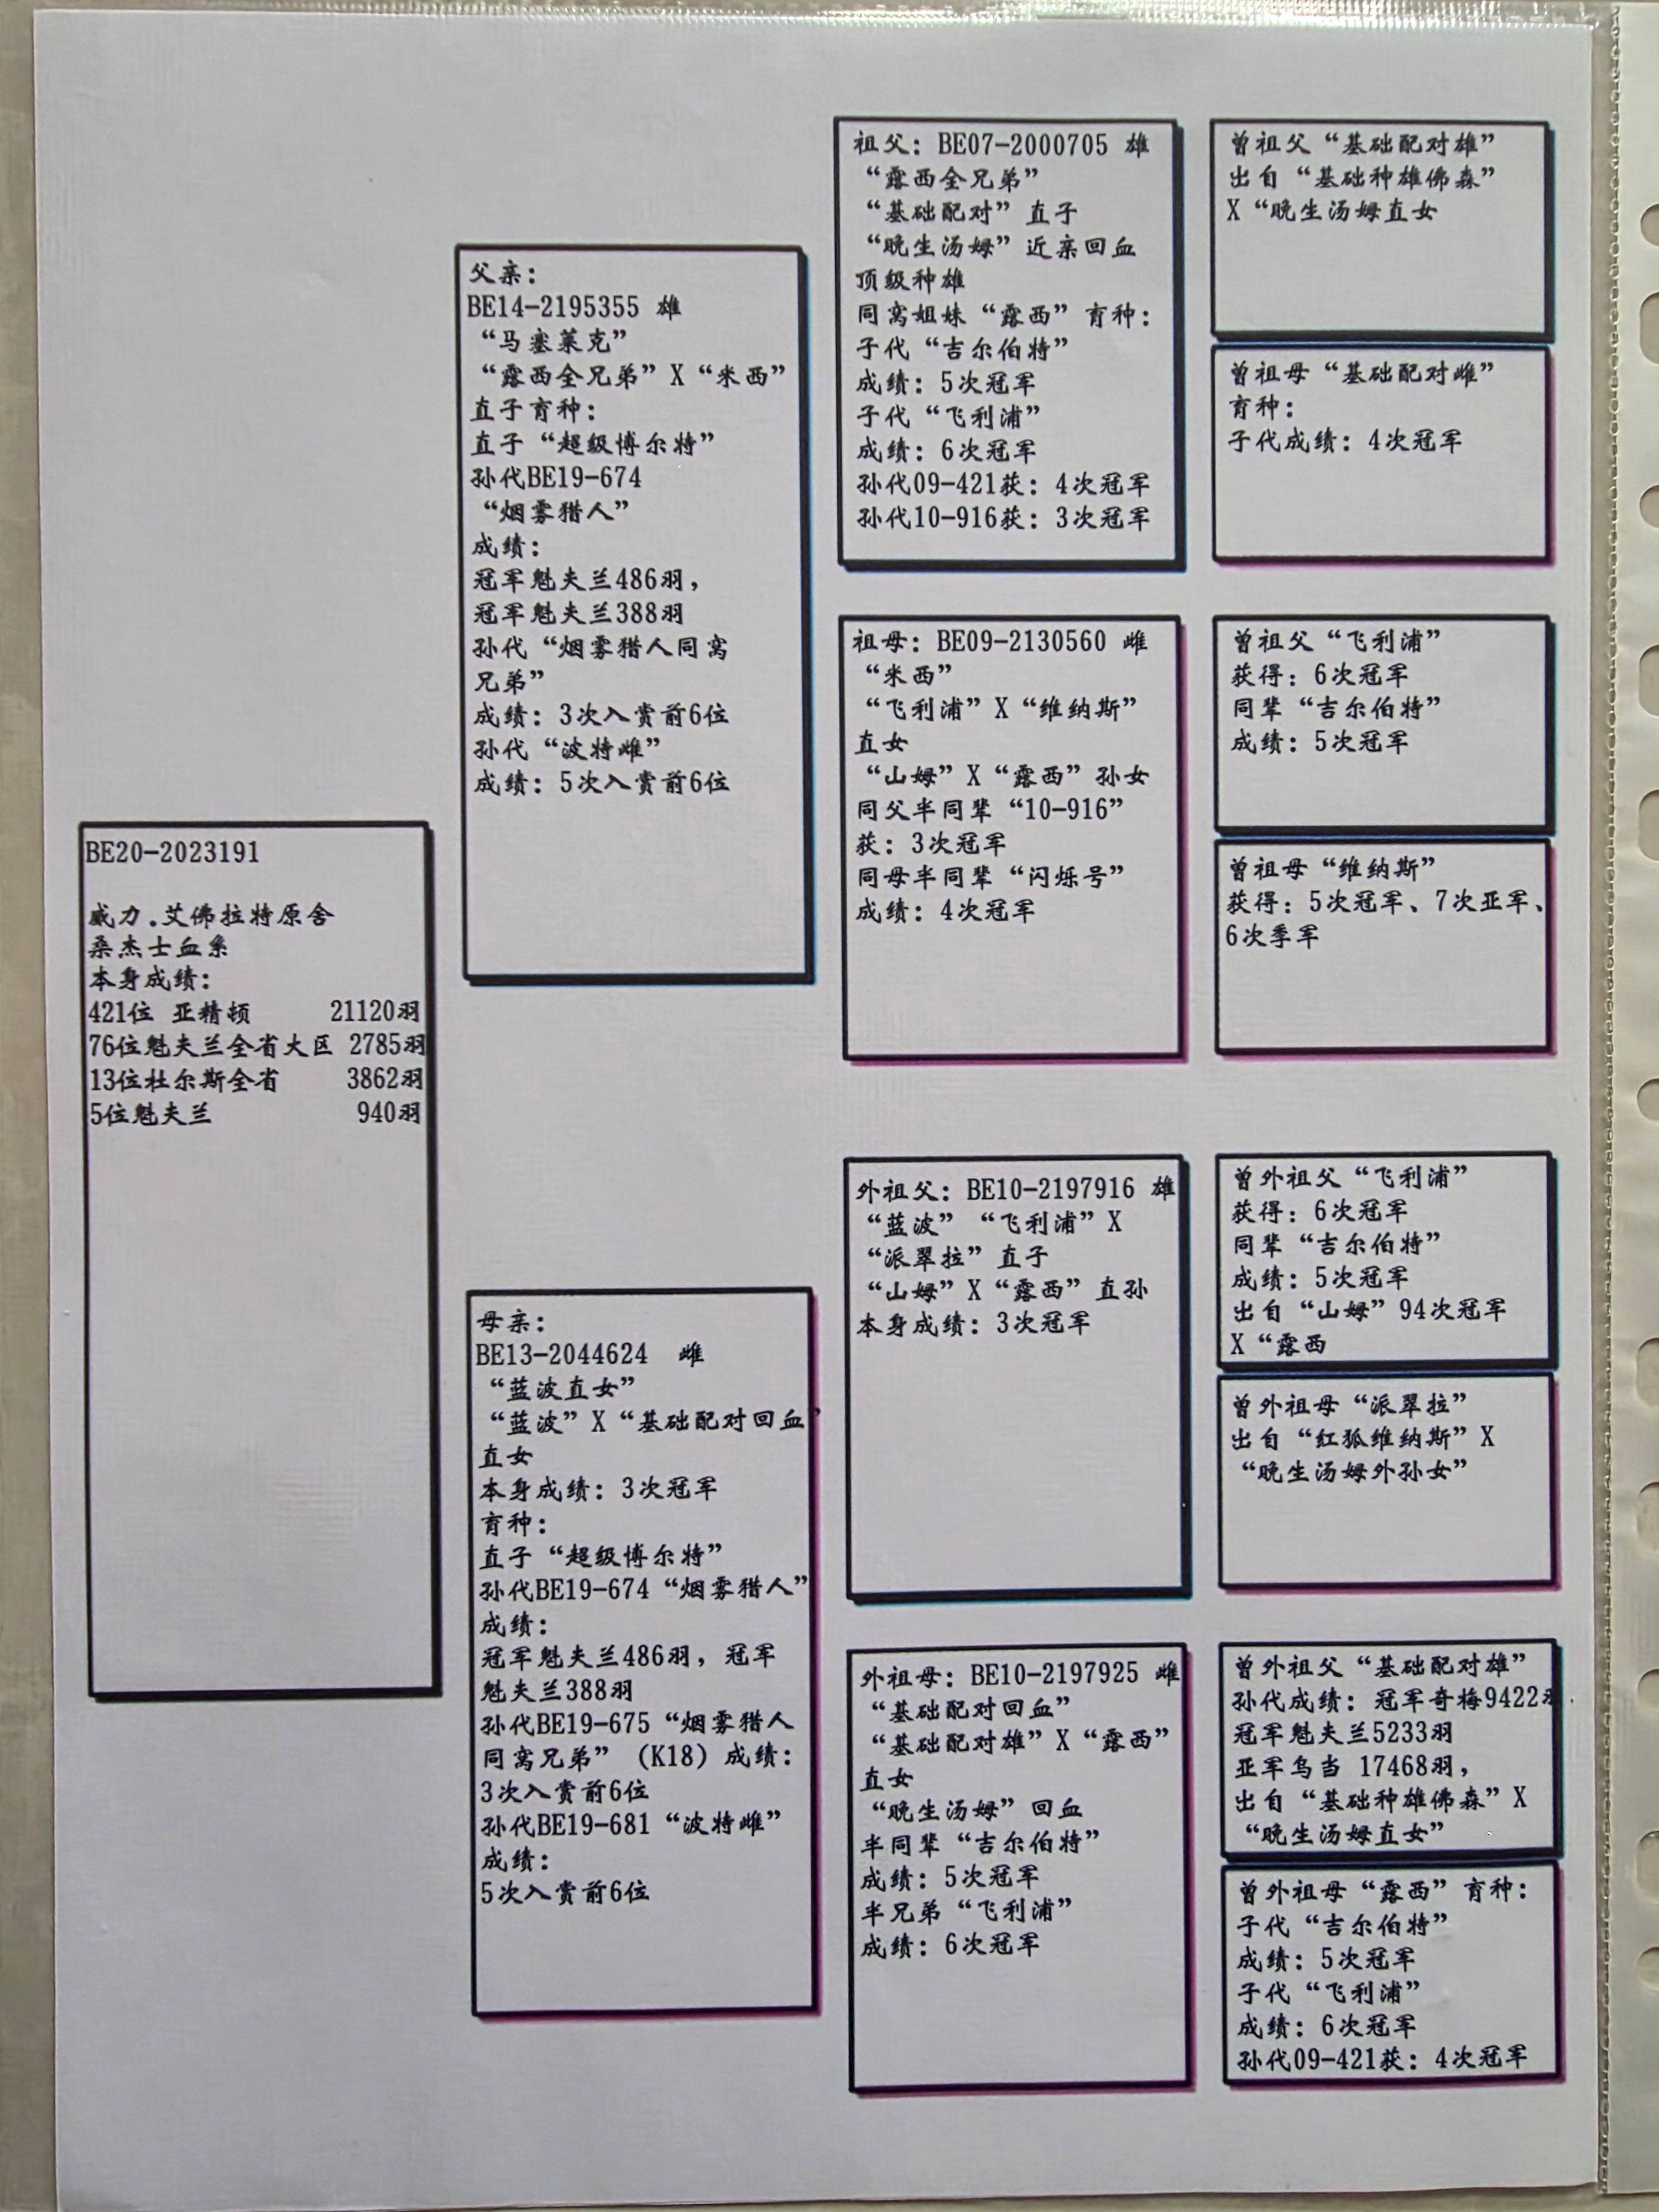 BE20-2023191
威力.艾佛拉特原舍
桑杰士血系
本身成绩：
421位 亚精顿 21120羽
76位魁夫兰全省大区 2785羽
13位杜尔斯全省 3862羽
5位魁夫兰 940羽
父亲：
BE14-2195355 雄
“马塞莱克”
“露西全兄弟”X“米西”
直子育种：
直子“超级博尔特”
孙代BE19-674
“烟雾猎人”
成绩：
冠军魁夫兰486羽，
冠军魁夫兰388羽
孙代“烟雾猎人同窝
兄弟”
成绩：3次入赏前6位
孙代“波特雌”
成绩：5次入赏前6位
母亲：
BE13-2044624 雌
“蓝波直女”
“蓝波”X“基础配对回血”
直女
本身成绩：3次冠军
育种：
直子“超级博尔特”
孙代BE19-674“烟雾猎人”
成绩：
冠军魁夫兰486羽，冠军
魁夫兰388羽
孙代BE19-675“烟雾猎人
同窝兄弟”（K18）成绩：
3次入赏前6位
孙代BE19-681“波特雌”
成绩：
5次入赏前6位
祖父：BE07-2000705 雄
“露西全兄弟”
“基础配对”直子
“晚生汤姆”近亲回血
顶级种雄
同窝姐妹“露西”育种：
子代“吉尔伯特”
成绩：5次冠军
子代“飞利浦”
成绩：6次冠军
孙代09-421获：4次冠军
孙代10-916获：3次冠军
祖母：BE09-2130560 雌
“米西”
“飞利浦”X“维纳斯”
直女
“山姆”X“露西”孙女
同父半同辈“10-916”
获：3次冠军
同母半同辈“闪烁号”
成绩：4次冠军
外祖父：BE10-2197916 雄
“蓝波”“飞利浦”X
“派翠拉”直子
“山姆”X“露西”直孙
本身成绩：3次冠军
外祖母：BE10-2197925 雌
“基础配对回血”
“基础配对雄”X“露西”
直女
“晚生汤姆”回血
半同辈“吉尔伯特”
成绩：5次冠军
半兄弟“飞利浦”
成绩：6次冠军
曾祖父“基础配对雄”
出自“基础种雄佛森”
X“晚生汤姆直女
曾祖母“基础配对雌”
育种：
子代成绩：4次冠军
曾祖父“飞利浦”
获得：6次冠军
同辈“吉尔伯特”
成绩：5次冠军
曾祖母“维纳斯”
获得：5次冠军、7次亚军、
6次季军
曾外祖父“飞利浦”
获得：6次冠军
同辈“吉尔伯特”
成绩：5次冠军
出自“山姆”94次冠军
X“露西
曾外祖母“派翠拉”
出自“红狐维纳斯”X
“晚生汤姆外孙女”
曾外祖父“基础配对雄”
孙代成绩：冠军奇梅9422羽
冠军魁夫兰5233羽
亚军乌当 17468羽，
出自“基础种雄佛森”X
“晚生汤姆直女”
曾外祖母“露西”育种：
子代“吉尔伯特”
成绩：5次冠军
子代“飞利浦”
成绩：6次冠军
孙代09-421获：4次冠军